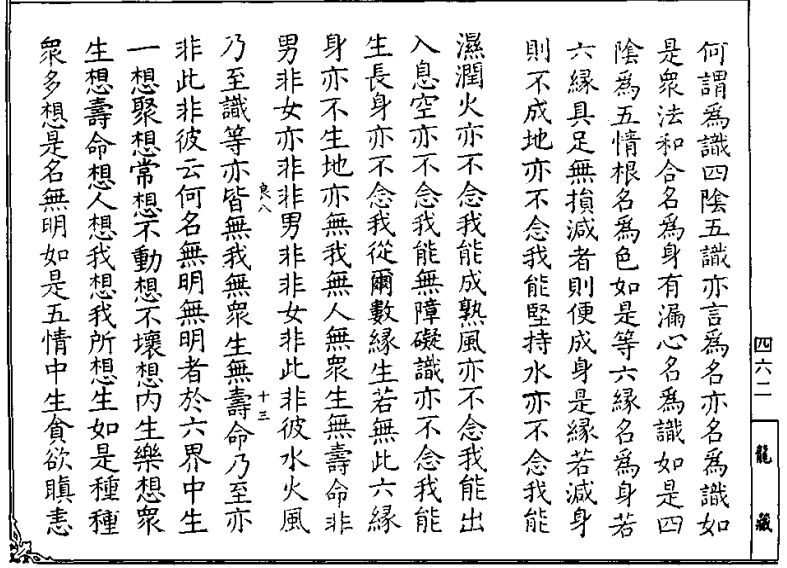 何謂爲識四陰五識亦言爲名亦名爲識如
是衆法和合名爲身有漏心名爲識如是四
陰爲五情根名爲色如是等六緣名爲身若
六緣具足無損減者則便成身是緣若減身
則不成地亦不念我能堅持水亦不念我能
濕潤火亦不念我能成熟風亦不念我能出
入息空亦不念我能無障礙識亦不念我能
生長身亦不念我從爾數緣生若無此六緣
身亦不生地亦無我無人無衆生無壽命非
男非女亦非非男非非女非此非彼水火風
乃至識等亦皆無我無衆生無壽命乃至亦
非此非彼云何名無明無明者於六界中生
一想聚想常想不動想不壞想内生樂想衆
生想壽命想人想我想我所想生如是種種
衆多想是名無明如是五情中生貪欲瞋恚
良八
十三
四六二
龍藏